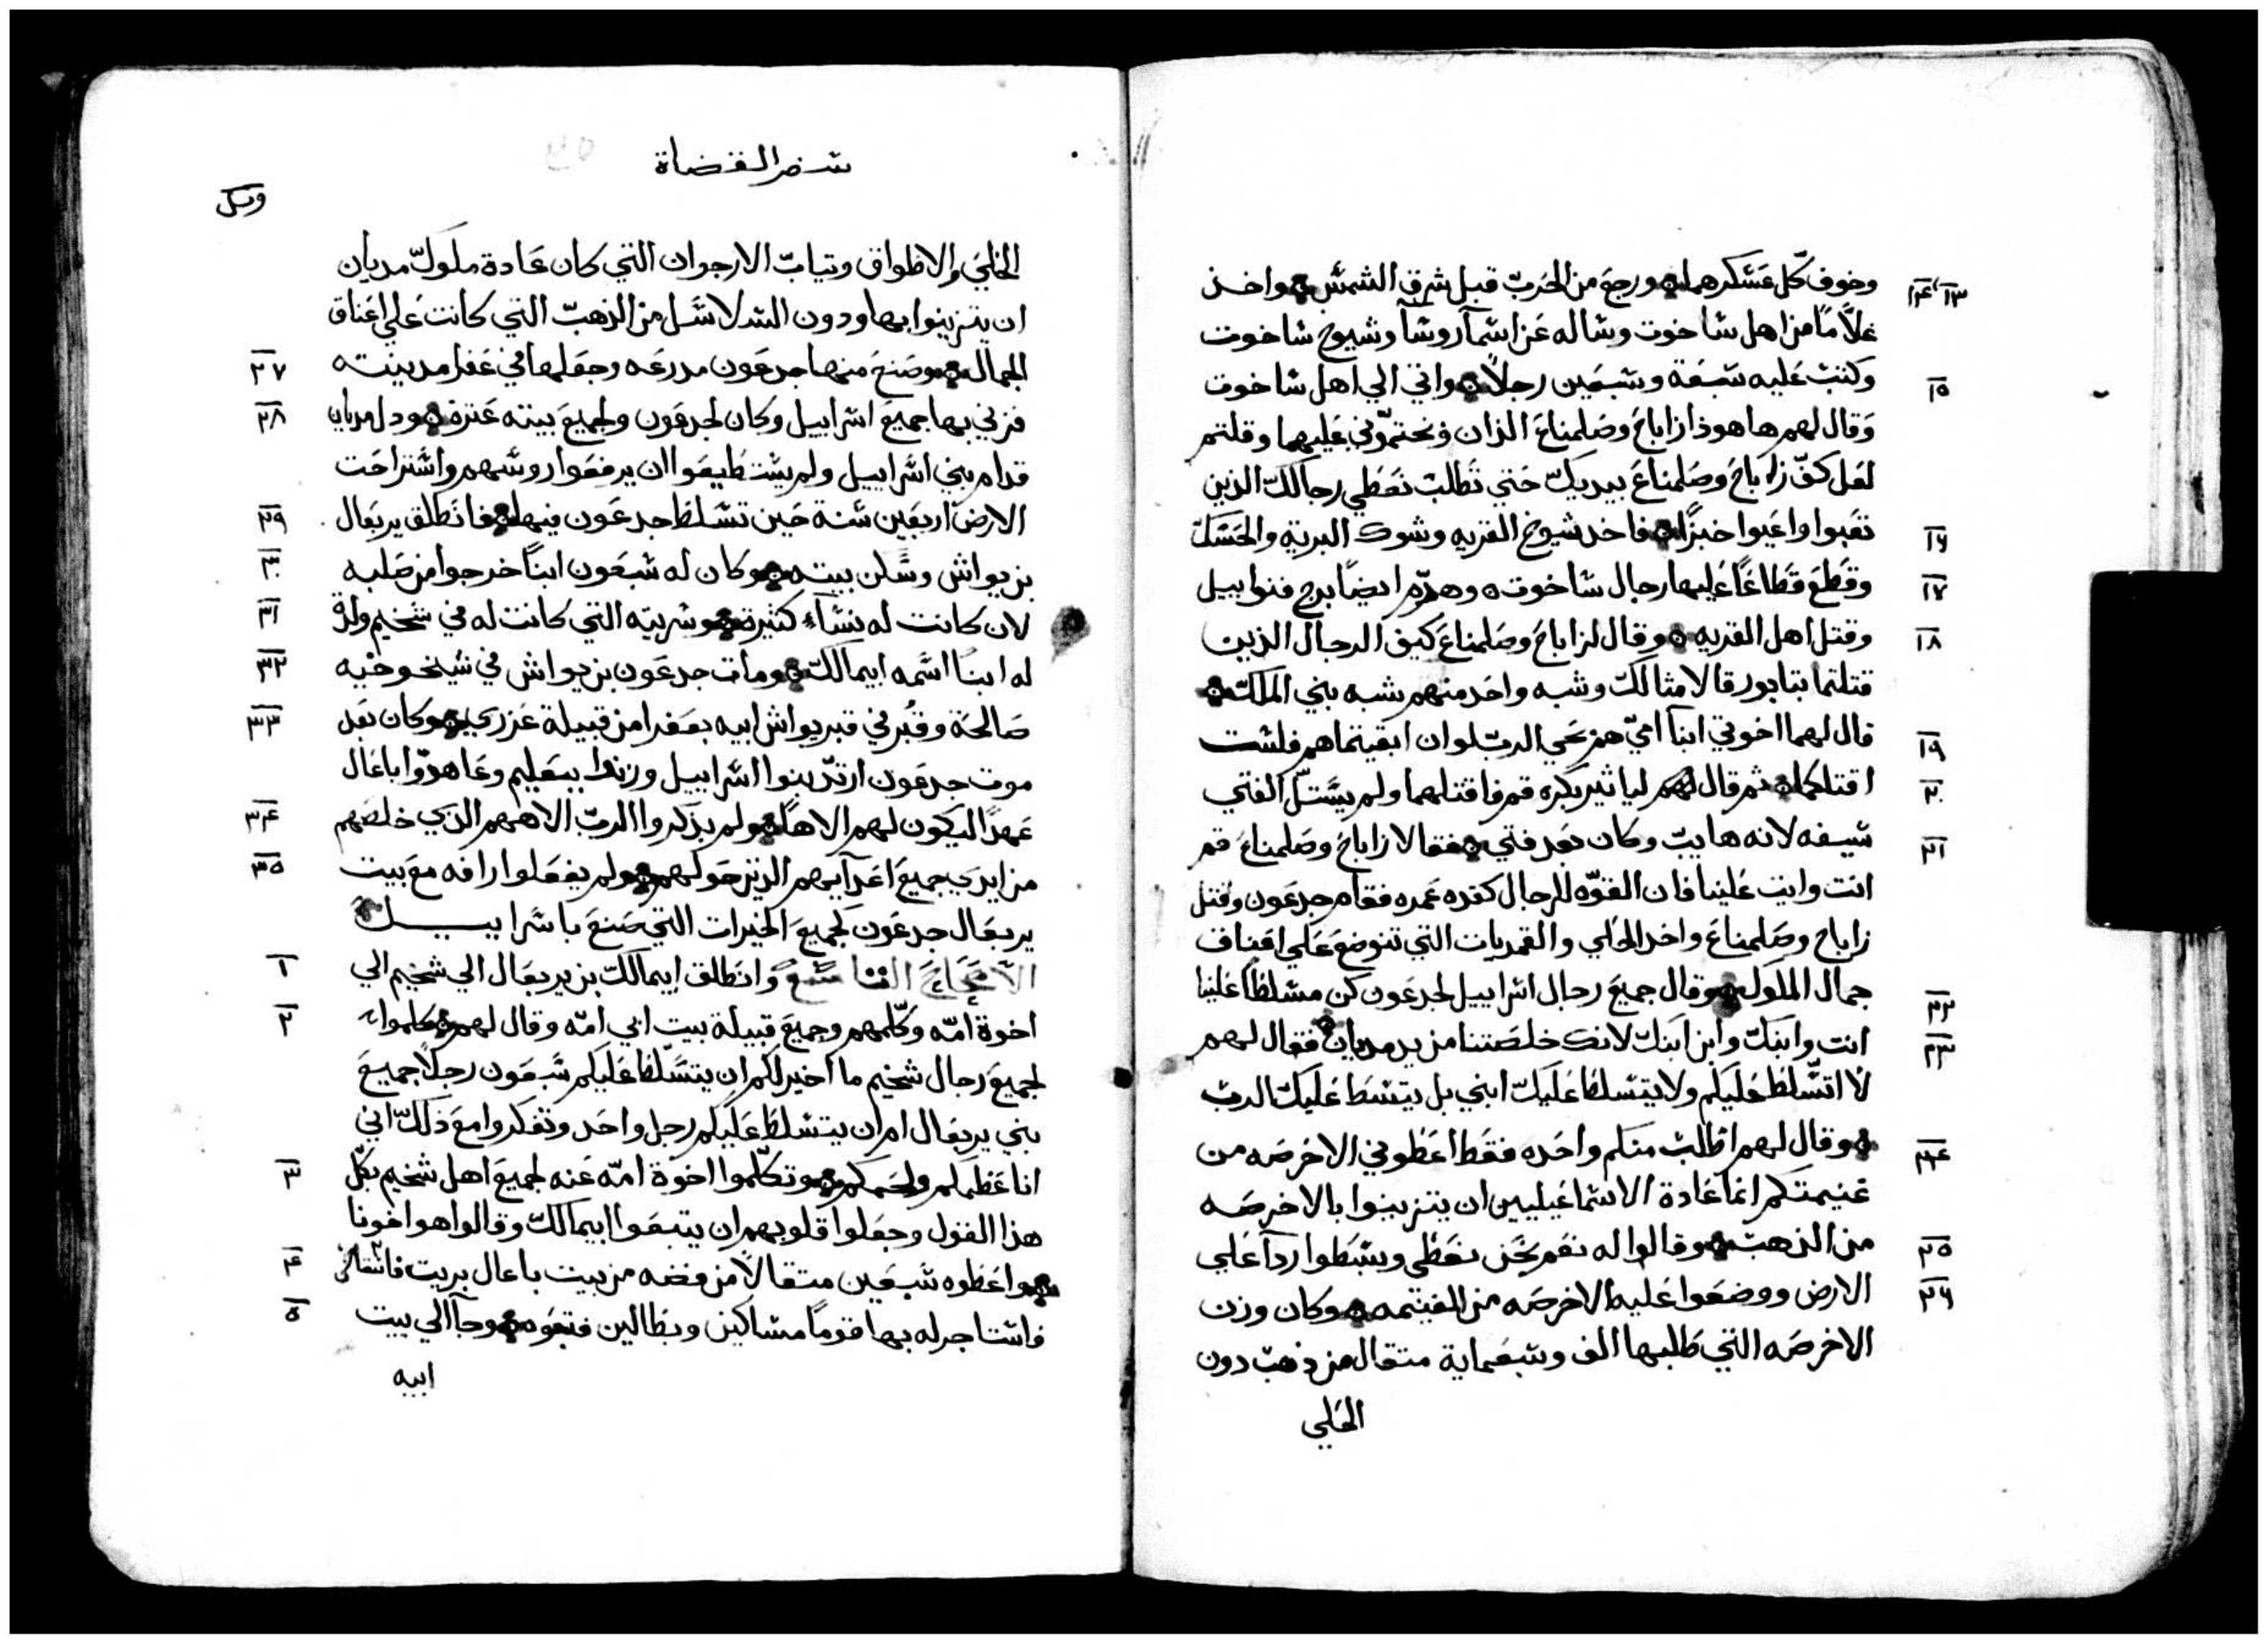 وخوف كل عسكرهما ورجع من الحرب قبل شرق الشمس واخذ
١٣ ١٤
غلاما من اهل ساخوت وساله عن اسما روسا وشيوخ ساخوت
وكتب عليه سبعة وسبعين رجلا واتي الي اهل ساخوت
١٥
وقال لهم هاهوذا زاباح وصلمناع الذان وبختموني عليهما وقلتم
لعل كف زاباح وصلمناع بيديك حتي تطالب نعطي رجالك الذين
تعبوا واعيوا خبزا فاخد شيوخ القريه وشوك البرية والحسك
١٦
وقطع قطاعا عليها رجال ساخوت وهدم ايضا برج فنواييل
١٧
وقتل اهل القريه وقال لزاباح وصلمناع كيف الرجال الذين
١٨
قتلتما بتابور قالا مثالك وشبه واحد منهم يشبه بني الملك
قال لهما اخوتي ابنا امي هم حي الرب لو ان ابقيتماهم فلست
١٩
اقتلكما ثم قال لهم لياثير بكره قم فاقتلهما ولم يستل الفتي
٢٠
سيفه لانه هايب وكان بعد فتي فقالا زاباح وصلمناع قم
٢١
انت وايت علينا فان القوه للرجال كقده عمده فقام جدعون وقتل
زاباح وصلمناع واخد الحلي والقمريات التي تنوضع علي اعناق
جمال الملوك وقال جميع رجال اسراييل لجدعون كن مسلطا علينا
٢٢
انت وابنك وابن ابنك لانك خلصتنا من يد مديان فقال لهم
٢٣
لا اتسلط عليكم ولا يتسلط عليك ابني بل يتسط عليك الرب
وقال لهم اطلب منكم واحده فقط اعطوني الاخرصه من
٢٤
غنيمتكم انما عادة الاسماعيليين ان يتزينوا بالاخرصه
من الذهب وقالوا له نعم نحن نعطي وبسطوا ردآ علي
٢٥
الارض ووضعوا عليه الاخرصه من الغنيمه وكان وزن
٢٦
الاخرصه التي طلبها الف وسبعماية متقال من ذهب دون
الحلي
سفر القضاة
الحلي والاطواق وتياب الارجوان التي كان عادة ملوك مديان
ان يتزينوا بها ودون السلاسل من الذهب التي كانت علي اعناق
الجمال وصنع منها جدعون مدرعه وجعلها في عفرا مدينته
٢٧
فزني بها جميع اسراييل وكان لجدعون ولجميع بيته عترة ودل مديان
٢٨
قدام بني اسراييل ولم يستطيعوا ان يرفعوا روسهم واستراحت
الارض اربعين سنة حين تسلط جدعون فيها فانطلق يربعال
٢٩
بن يواش وسكن بيته وكان له سبعون ابنا خرجوا من صلبه
٣٠
لان كانت له نسآء كثيرة وسريته التي كانت له في شخيم ولدة
٣١
له ابنا اسمه ايمالك ومات جدعون بن يواش في شيخوخيه
٣٢
صالحة وقبر في قبر يواش ابيه بعفرا من قبيلة عزري وكان بعد
٣٣
موت جدعون ارتد بنوا اسراييل وزنوا ببعليم وعاهدوا باعال
عهدا ليكون لهم الاها ولم يذكروا الرب الاههم الذي خلصهم
٣٤
من ايدي جميع اعدآيهم الذين حولهم ولم يفعلوا رافه مع بيت
٣٥
يربعال جدعون لجميع الخيرات التي صنع باسراييل
الاصحاح التاسع وانطلق ايمالك بن يربعال الي شخيم الي
١
اخوة امه وكلمهم وجميع قبيلة بيت ابي امه وقال لهم كلموا
٢
لجميع رجال شخيم ما اخير لكم ان يتسلط عليكم سبعون رجلا جميع
بني يربعال ام ان يتسلط عليكم رجل واحد وتفكروا مع ذلك اني
انا عظمكم ولحمكم وتكلموا اخوة امه عنه لجميع اهل شخيم بكل
٣
هذا القول وجعلوا قلوبهم ان يتبعوا ايمالك وقالوا هو اخونا
واعطوه سبعين متقالا من فضه من بيت باعال بريت
٤
فاستاجر له بها قوما مساكين وبطالين فتبعوه وجآ الي بيت
٥
ابيه